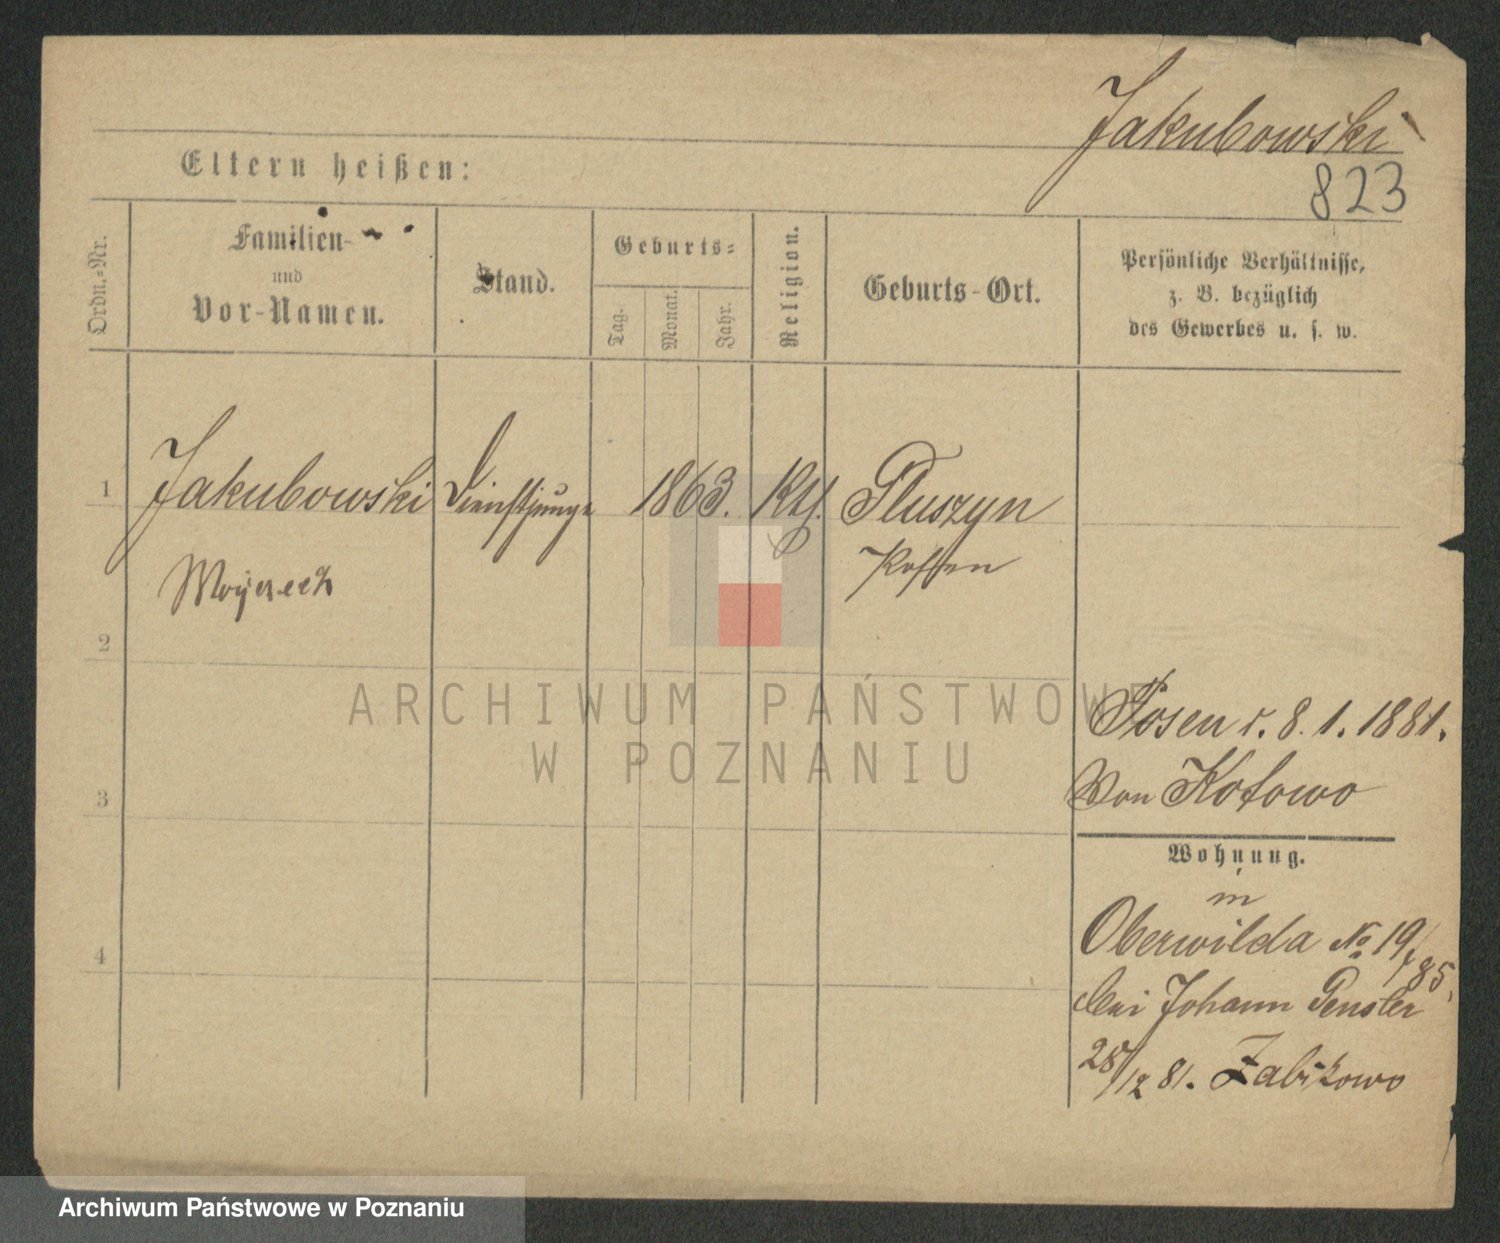 Jakubowski
823
Eltern heißen:
Ordn.-Nr.
Familien-
und
Vor-Namen.
Stand.
Geburts-
Tag.
Monat.
Jahr.
Religion.
Geburts-Ort.
Persönliche Verhältnisse,
z. B. bezüglich
des Gewerbes u. s. w.
1
Jakubowski
Dienstjunge
1863.
Kth.
Pluszyn
Kosten
2
ARCHIWUM PAŃSTWOWE
W POZNANIU
Posen d. 8. 1. 1881.
Von Kotowo
3
Wohnung.
in
Oberwilda No 19/85.
bei Johann Gensler
4
28/12 81. Zabikowo
Archiwum Państwowe w Poznaniu